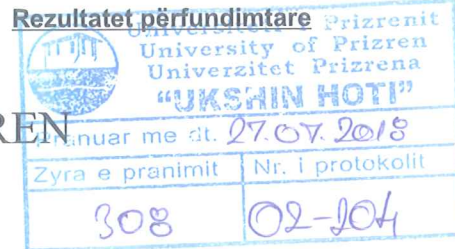 Rezultatet përfundimtare
Universiteti i Prizrenit
University of Prizren
Univerzitet Prizrena
“UKSHIN HOTI”
REN
Pranuar me dt. 27.07.2018
Zyra e pranimit Nr. i protokolit
308 02-204